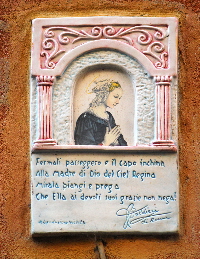 Fermati passeggero e il capo inchina
Alla Madre di Dio del Ciel Regina
Mirala piangi e prega
Che Ella ai devoti suoi grazie non nega!